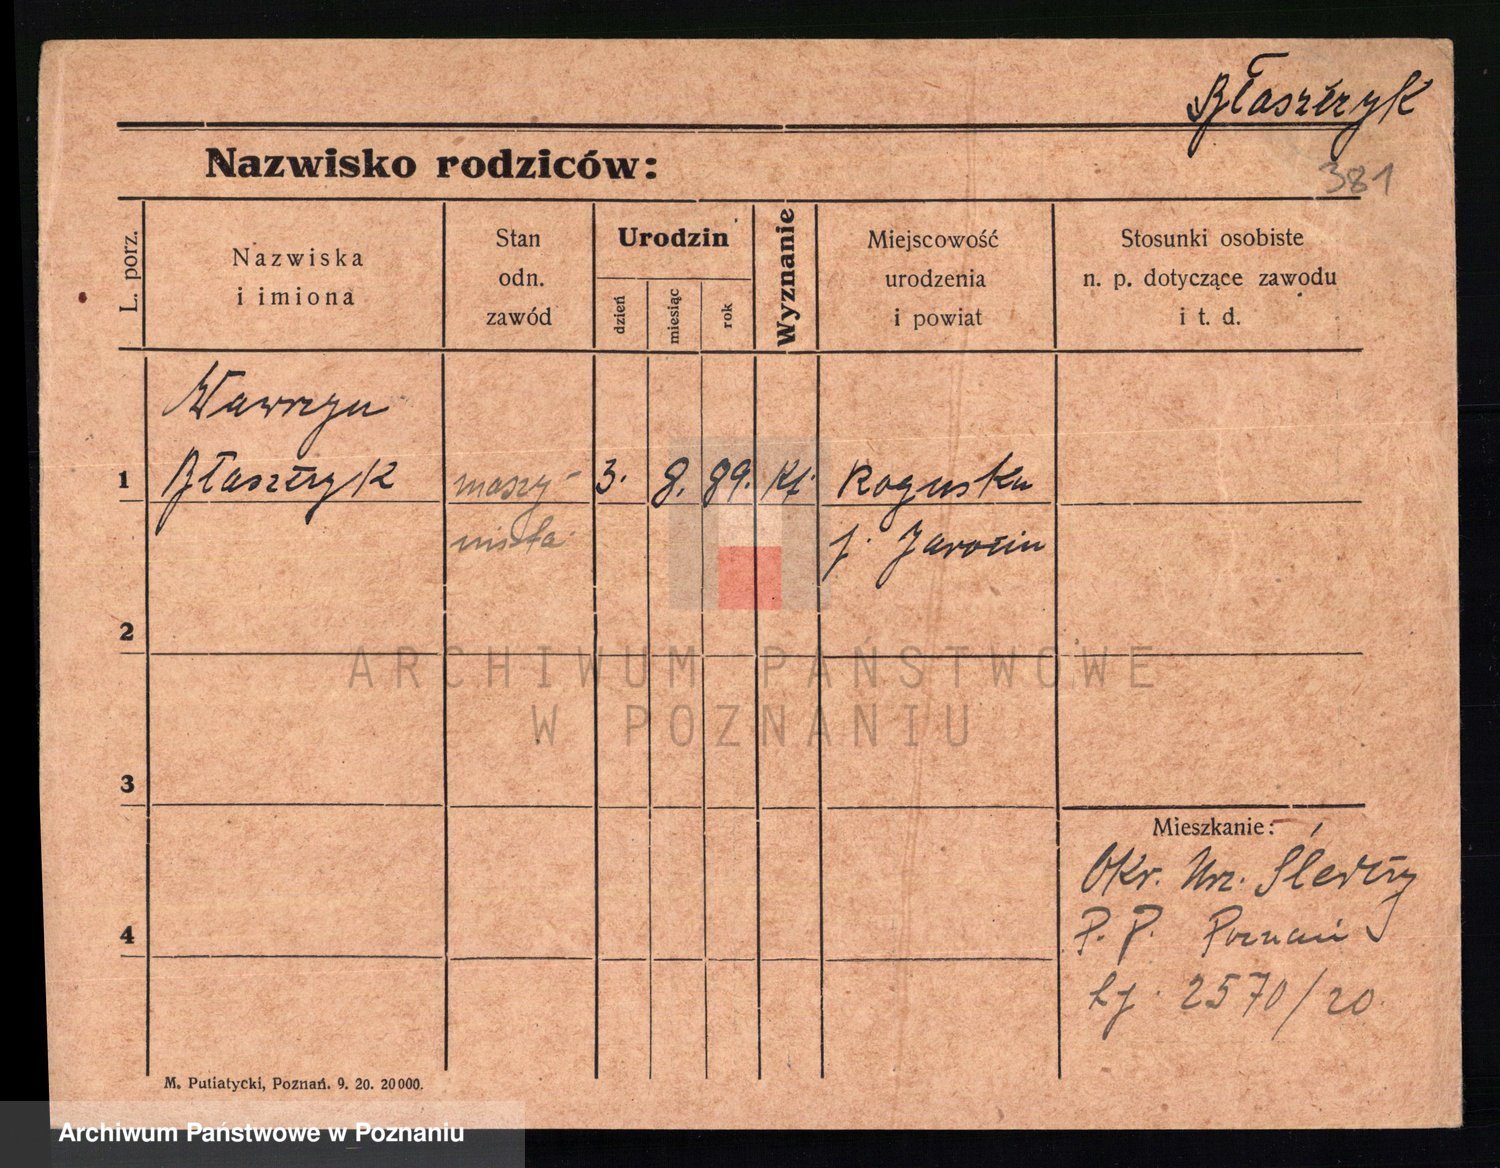 Błaszczyk
Nazwisko rodziców:
381
L. porz.
Nazwiska
i imiona
Stan
odn.
zawód
Urodzin
dzień
miesiąc
rok
Wyznanie
Miejscowość
urodzenia
i powiat
Stosunki osobiste
n. p. dotyczące zawodu
i t. d.
Wawrzyn
1 Błaszczyk maszy- 3. 8. 89. kt. Roguska
nista. p. Jarocin
2
ARCHIWUM PAŃSTWOWE
W POZNANIU
3
Mieszkanie:
Okr. Urz. Śledczy
4 P. P. Poznań
Lj. 2570/20.
M. Putiatycki, Poznań. 9. 20. 20000.
Archiwum Państwowe w Poznaniu